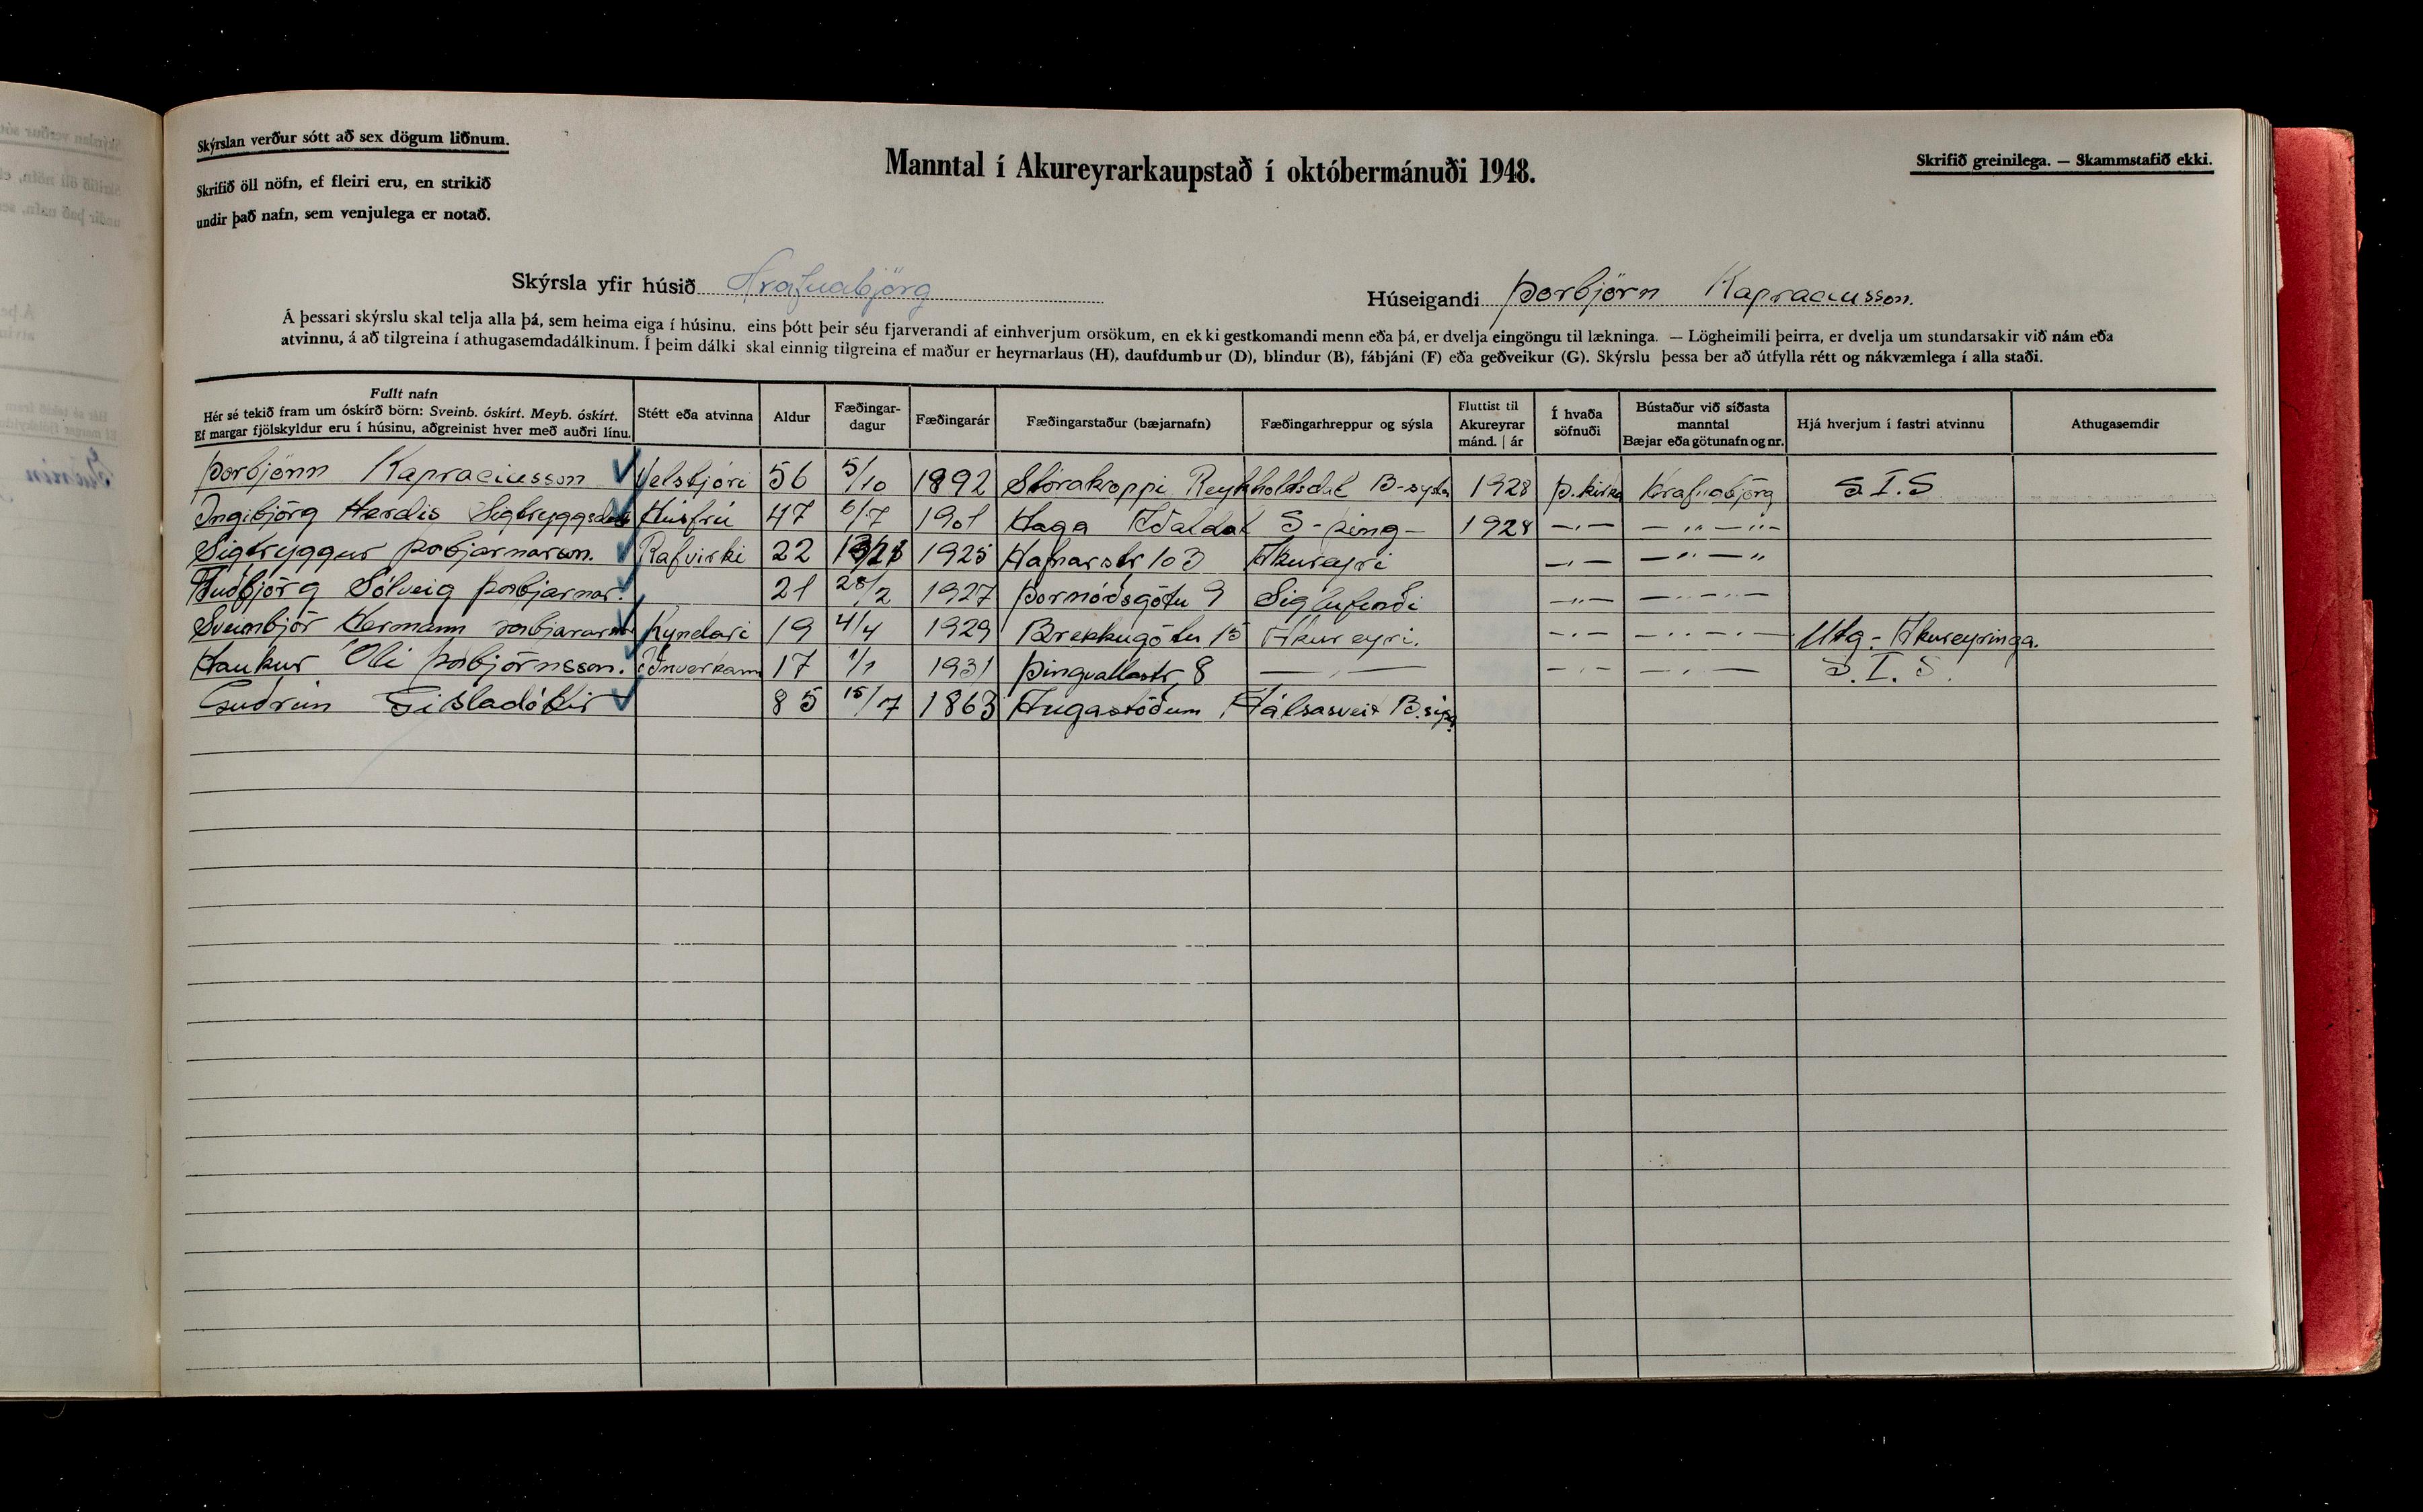 Skýrslan verður sótt að sex dögum liðnum.
Skrifið öll nöfn, ef fleiri eru, en strikið
undir það nafn, sem venjulega er notað.
Manntal í Akureyrarkaupstað í októbermánuði 1948.
Skrifið greinilega. — Skammstafið ekki.
Skýrsla yfir húsið Hrafnabjörg
Húseigandi Þorbjörn Kapraciusson.
Á þessari skýrslu skal telja alla þá, sem heima eiga í húsinu, eins þótt þeir séu fjarverandi af einhverjum orsökum, en ekki gestkomandi menn eða þá, er dvelja eingöngu til lækninga. — Lögheimili þeirra, er dvelja um stundarsakir við nám eða
atvinnu, á að tilgreina í athugasemdadálkinum. Í þeim dálki skal einnig tilgreina ef maður er heyrnarlaus (H), daufdumbur (D), blindur (B), fábjáni (F) eða geðveikur (G). Skýrslu þessa ber að útfylla rétt og nákvæmlega í alla staði.
Fullt nafn
Hér sé tekið fram um óskírð börn: Sveinb. óskírt. Meyb. óskírt.
Ef margar fjölskyldur eru í húsinu, aðgreinist hver með auðri línu.
Stétt eða atvinna
Aldur
Fæðingar-
dagur
Fæðingarár
Fæðingarstaður (bæjarnafn)
Fæðingarhreppur og sýsla
Fluttist til
Akureyrar
mánd. | ár
Í hvaða
söfnuði
Bústaður við síðasta
manntal
Bæjar eða götunafn og nr.
Hjá hverjum í fastri atvinnu
Athugasemdir
Þorbjörn Kapraciusson Vélstjóri 56 5/10 1892 Stórakroppi Reykholtsdal B-sýsla 1928 Þ.kirkj Hrafnabjörg S.I.S
Ingibjörg Herdis Sigtryggsdótt Húsfrú 47 6/7 1901 Haga Aðaldal S-þing- 1928 —"— —"—"—
Sigtryggur Þorbjarnarson. Rafvirki 22 1925 Hafnarstr 103 Akureyri —"— —"—"
Guðbjörg Sólveig Þorbjarnar. 21 28/2 1927 Þormóðsgötu 9 Siglufirði —"— —"—"—
Sveinbjör Hermann Þorbjarnars Kyndari 19 4/4 1929 Brekkugötu 15 Akureyri. —"— —"—"— Utg-Akureyringa.
Haukur Óli Þorbjörnsson. Iðnverkam 17 1/1 1931 Þingvallastr, 8 — — —"— —"— S.I.S.
Guðrún Gisladóttir 85 15/7 1863 Augastöðum Hálsasveit B.sýs